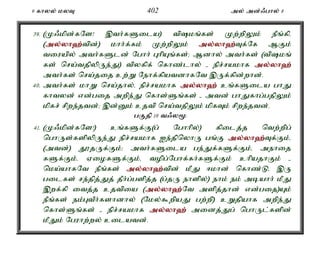 8 காலல் மலவு 402 அல் அன்ஃபால் 8
39. (முஃமின்களே! இவர்களுடைய) விஷமங்கள் முற்றிலும் நீங்கி,
(அல்லாஹ்வின்) மார்க்கம் முற்றிலும் அல்லாஹ்வுக்கே ஆகும்
வரையில் அவர்களுடன் போர் புரியுங்கள்; ஆனால் அவர்கள் (விஷமங்
கள் செய்வதிலிருந்து) விலகிக் கொண்டால் - நிச்சயமாக அல்லாஹ்
அவர்கள் செய்வதை உற்று நோக்கியவனாகவே இருக்கின்றான்.
40. அவர்கள் மாறு செய்தால், நிச்சயமாக அல்லாஹ் உங்களுடைய பாது
காவலன் என்பதை அறிந்து கொள்ளுங்கள் - அவன் பாதுகாப்பதிலும்
மிகச் சிறந்தவன்; இன்னும் உதவி செய்வதிலும் மிகவும் சிறந்தவன்.
பகுதி 10 வஃலமூ
41. (முஃமின்களே!) உங்களுக்கு(ப் போரில்) கிடைத்த வெற்றிப்
பொருள்களிலிருந்து நிச்சயமாக ஐந்திலொரு பங்கு அல்லாஹ்வுக்கும்,
(அவன்) தூதருக்கும்; அவர்களுடைய பந்துக்களுக்கும், அநாதை
களுக்கும், ஏழைகளுக்கும், வழிப்போக்கர்களுக்கும் உரியதாகும் -
மெய்யாகவே நீங்கள் அல்லாஹ்வின் மீது ஈமான் கொண்டு, இரு
படைகள் சந்தித்துத் தீர்ப்பளித்த (பத்ரு நாளில்) நாம் நம் அடியார் மீது
இறக்கி வைத்த உதவியை (அல்லாஹ்வே அளித்தான் என்பதை)யும்
நீங்கள் நம்புவீர்களானால் (மேல்கூறியது பற்றி) உறுதியாக அறிந்து
கொள்ளுங்கள் - நிச்சயமாக அல்லாஹ் அனைத்துப் பொருட்களின்
மீதும் பேராற்றல் உடையவன்.